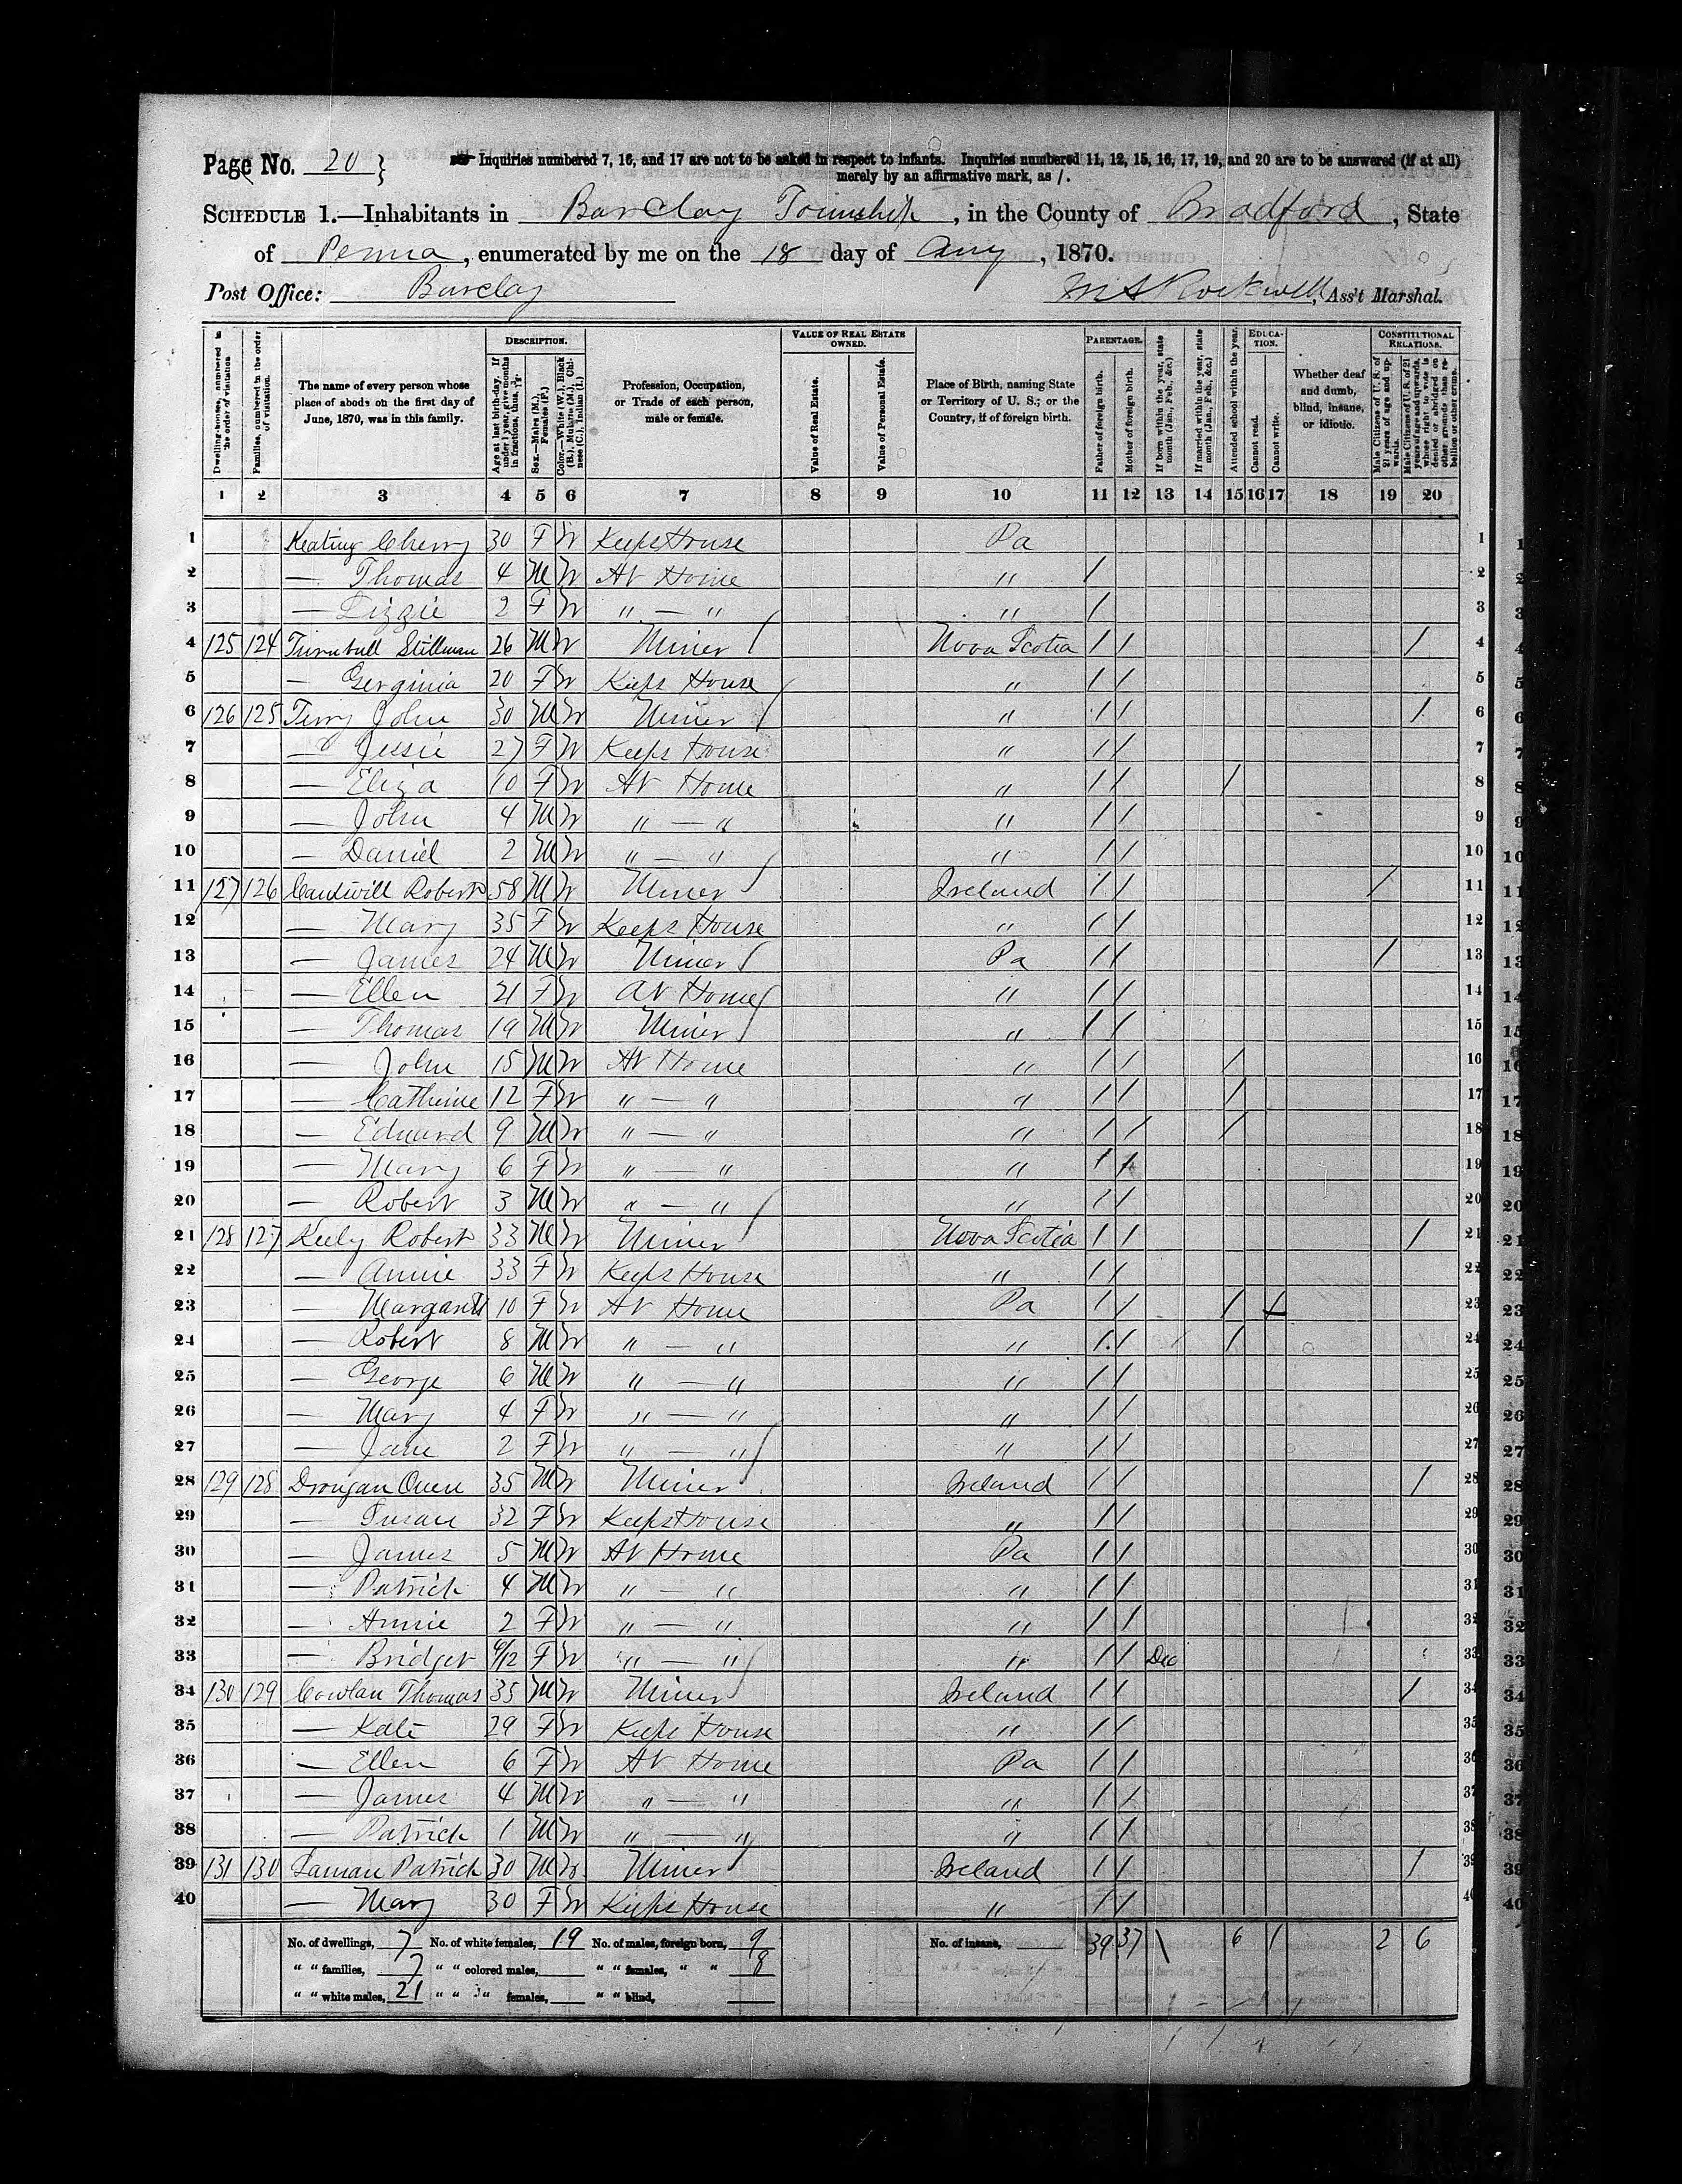 Page No. 20
Inquiries numbered 7, 16, and 17 are not to be asked in respect to infants. Inquiries numbered 11, 12, 15, 16, 17, 19, and 20 are to be answered (if at all)
merely by an affirmative mark, as /.
SCHEDULE 1.—Inhabitants in Barclay Township, in the County of Bradford, State
of Penna, enumerated by me on the 18 day of Aug, 1870.
Post Office: Barclay Rockwell, Ass't Marshal.
Dwelling-houses, numbered in the order of visitation
Families, numbered in the order of visitation.
The name of every person whose place of abode on the first day of June, 1870, was in this family.
DESCRIPTION.
Age at last birth-day. If under 1 year, give months in fractions, thus, 3/12.
Sex.—Males (M.), Females (F.)
Color.—White (W.), Black (B.), Mulatto (M.), Chinese (C.), Indian (I.)
Profession, Occupation, or Trade of each person, male or female.
VALUE OF REAL ESTATE OWNED.
Value of Real Estate.
Value of Personal Estate.
Place of Birth, naming State or Territory of U. S.; or the Country, if of foreign birth.
PARENTAGE.
Father of foreign birth.
Mother of foreign birth.
If born within the year, state month (Jan., Feb., &c.)
If married within the year, state month (Jan., Feb., &c.)
Attended school within the year.
EDUCATION.
Cannot read.
Cannot write.
Whether deaf and dumb, blind, insane, or idiotic.
CONSTITUTIONAL RELATIONS.
Male Citizens of U. S. of 21 years of age and upwards.
Male Citizens of U. S. of 21 years of age and upwards, whose right to vote is denied or abridged on other grounds than rebellion or other crime.
1 2 3 4 5 6 7 8 9 10 11 12 13 14 15 16 17 18 19 20
1 Keating Cherry 30 F W Keeps House Pa 1
2 — Thomas 4 M W At Home " / 2
3 — Lizzie 2 F W " — " " / 3
4 125 124 Turnbull Stillman 26 M W Miner Nova Scotia / / / 4
5 — Gerginia 20 F W Keeps House " / / 5
6 126 125 Terry John 30 M W Miner " / / / 6
7 — Jessie 27 F W Keeps House " / / 7
8 — Eliza 10 F W At Home " / / / 8
9 — John 4 M W " — " " / / 9
10 — Daniel 2 M W " — " " / / 10
11 127 126 Cantwill Robert 58 M W Miner Ireland / / / 11
12 — Mary 35 F W Keeps House " / / 12
13 — James 24 M W Miner Pa / / / 13
14 — Ellen 21 F W At Home " / / 14
15 — Thomas 19 M W Miner " / / 15
16 — John 15 M W At Home " / / / 16
17 — Catherine 12 F W " — " " / / / 17
18 — Edward 9 M W " — " " / / / 18
19 — Mary 6 F W " — " " / / 19
20 — Robert 3 M W " — " " / / 20
21 128 127 Keely Robert 33 M W Miner Nova Scotia / / / 21
22 — Annie 33 F W Keeps House " / / 22
23 — Margarett 10 F W At Home Pa / / / / 23
24 — Robert 8 M W " — " " / / / 24
25 — George 6 M W " — " " / / 25
26 — Mary 4 F W " — " " / / 26
27 — Jane 2 F W " — " " / / 27
28 129 128 Drougan Owen 35 M W Miner Ireland / / / 28
29 — Susan 32 F W Keeps House " / / 29
30 — James 5 M W At Home Pa / / 30
31 — Patrick 4 M W " — " " / / 31
32 — Annie 2 F W " — " " / / 32
33 — Bridget 6/12 F W " — " " / / Dec 33
34 130 129 Cowlan Thomas 35 M W Miner Ireland / / / 34
35 — Kate 29 F W Keeps House " / / 35
36 — Ellen 6 F W At Home Pa / / 36
37 — James 4 M W " — " " / / 37
38 — Patrick 1 M W " — " " / / 38
39 131 130 Laman Patrick 30 M W Miner Ireland / / / 39
40 — Mary 30 F W Keeps House " / / 40
No. of dwellings, 7 No. of white females, 19 No. of males, foreign born, 9 No. of insane, 39 37 \ 6 1 2 6
" " families, 7 " " colored males, " " females, " " 8
" " white males, 21 " " " females, " " blind,